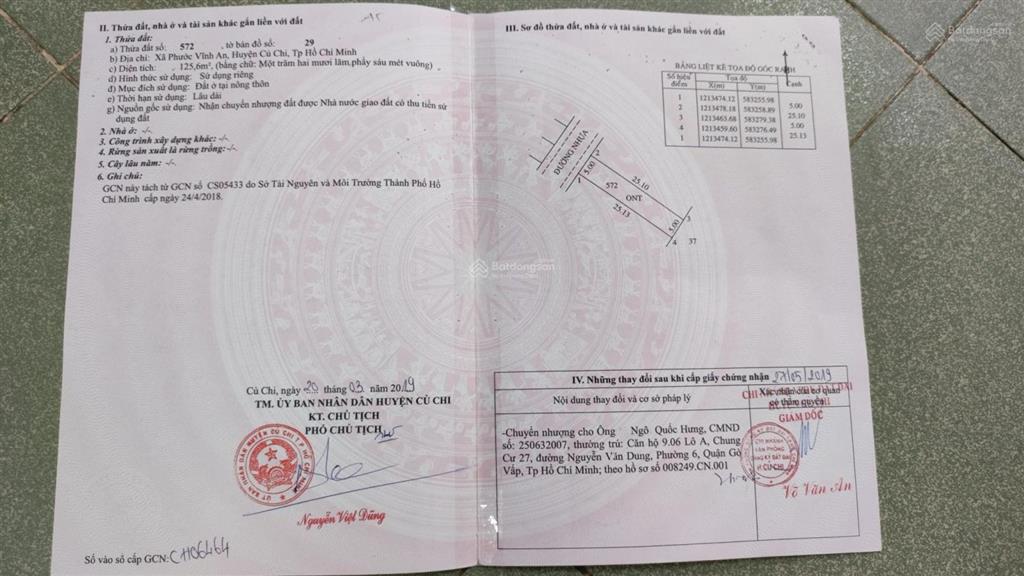 II. Thửa đất, nhà ở và tài sản khác gắn liền với đất
1. Thửa đất:
a) Thửa đất số: 572 , tờ bản đồ số: 29
b) Địa chỉ: Xã Phước Vĩnh An, Huyện Củ Chi, Tp Hồ Chí Minh
c) Diện tích: 125,6m², (bằng chữ: Một trăm hai mươi lăm phẩy sáu mét vuông)
d) Hình thức sử dụng: Sử dụng riêng
đ) Mục đích sử dụng: Đất ở tại nông thôn
e) Thời hạn sử dụng: Lâu dài
g) Nguồn gốc sử dụng: Nhận chuyển nhượng đất được Nhà nước giao đất có thu tiền sử
dụng đất
2. Nhà ở: -/-
3. Công trình xây dựng khác: -/-
4. Rừng sản xuất là rừng trồng:-/-
5. Cây lâu năm: -/-
6. Ghi chú:
GCN này tách từ GCN số CS05433 do Sở Tài Nguyên và Môi Trường Thành Phố Hồ
Chí Minh cấp ngày 24/4/2018.
Củ Chi, ngày 20 tháng 03 năm 2019
TM. ỦY BAN NHÂN DÂN HUYỆN CỦ CHI
KT. CHỦ TỊCH
PHÓ CHỦ TỊCH
Nguyễn Việt Dũng
Số vào sổ cấp GCN: CH06464
III. Sơ đồ thửa đất, nhà ở và tài sản khác gắn liền với đất
BẢNG LIỆT KÊ TỌA ĐỘ GÓC RANH
Số hiệu điểm Tọa độ Cạnh
X(m) Y(m)
1 1213474.12 583255.98
5.00
2 1213478.18 583258.89
25.10
3 1213463.68 583279.38
5.00
4 1213459.60 583276.49
25.13
1 1213474.12 583255.98
ĐƯỜNG NHỰA
1 5.00 2
25.10
572
ONT
25.13
5.00 3
4 37
Batdongsan
IV. Những thay đổi sau khi cấp giấy chứng nhận
27/05/2019
Nội dung thay đổi và cơ sở pháp lý
Xác nhận của cơ quan
có thẩm quyền
GIÁM ĐỐC
-Chuyển nhượng cho Ông Ngô Quốc Hưng, CMND
số: 250632007, thường trú: Căn hộ 9.06 Lô A, Chung
Cư 27, đường Nguyễn Văn Dung, Phường 6, Quận Gò
Vấp, Tp Hồ Chí Minh; theo hồ sơ số 008249.CN.001
CHI NHÁNH
VĂN PHÒNG
ĐĂNG KÝ ĐẤT ĐAI
H.CỦ CHI
Võ Văn An